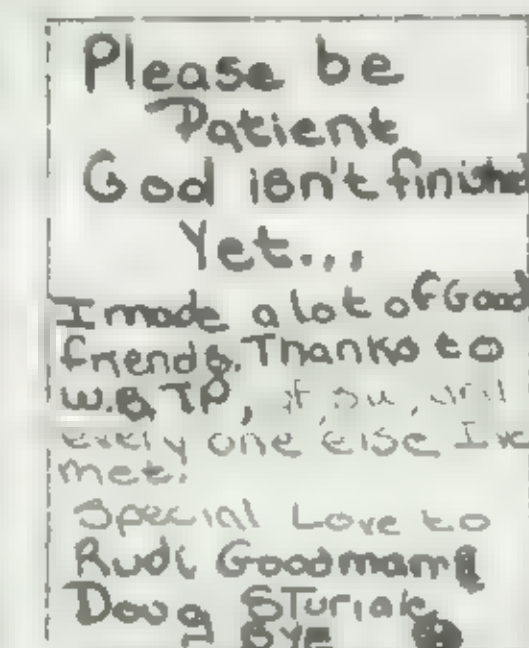 Please be
Patient
God isn't finished
Yet...
I made a lot of Good
friends. Thanks to
W.B, TP,
every one else I've
met.
Special Love to
Rudi Goodman &
Doug STuriale
BYE